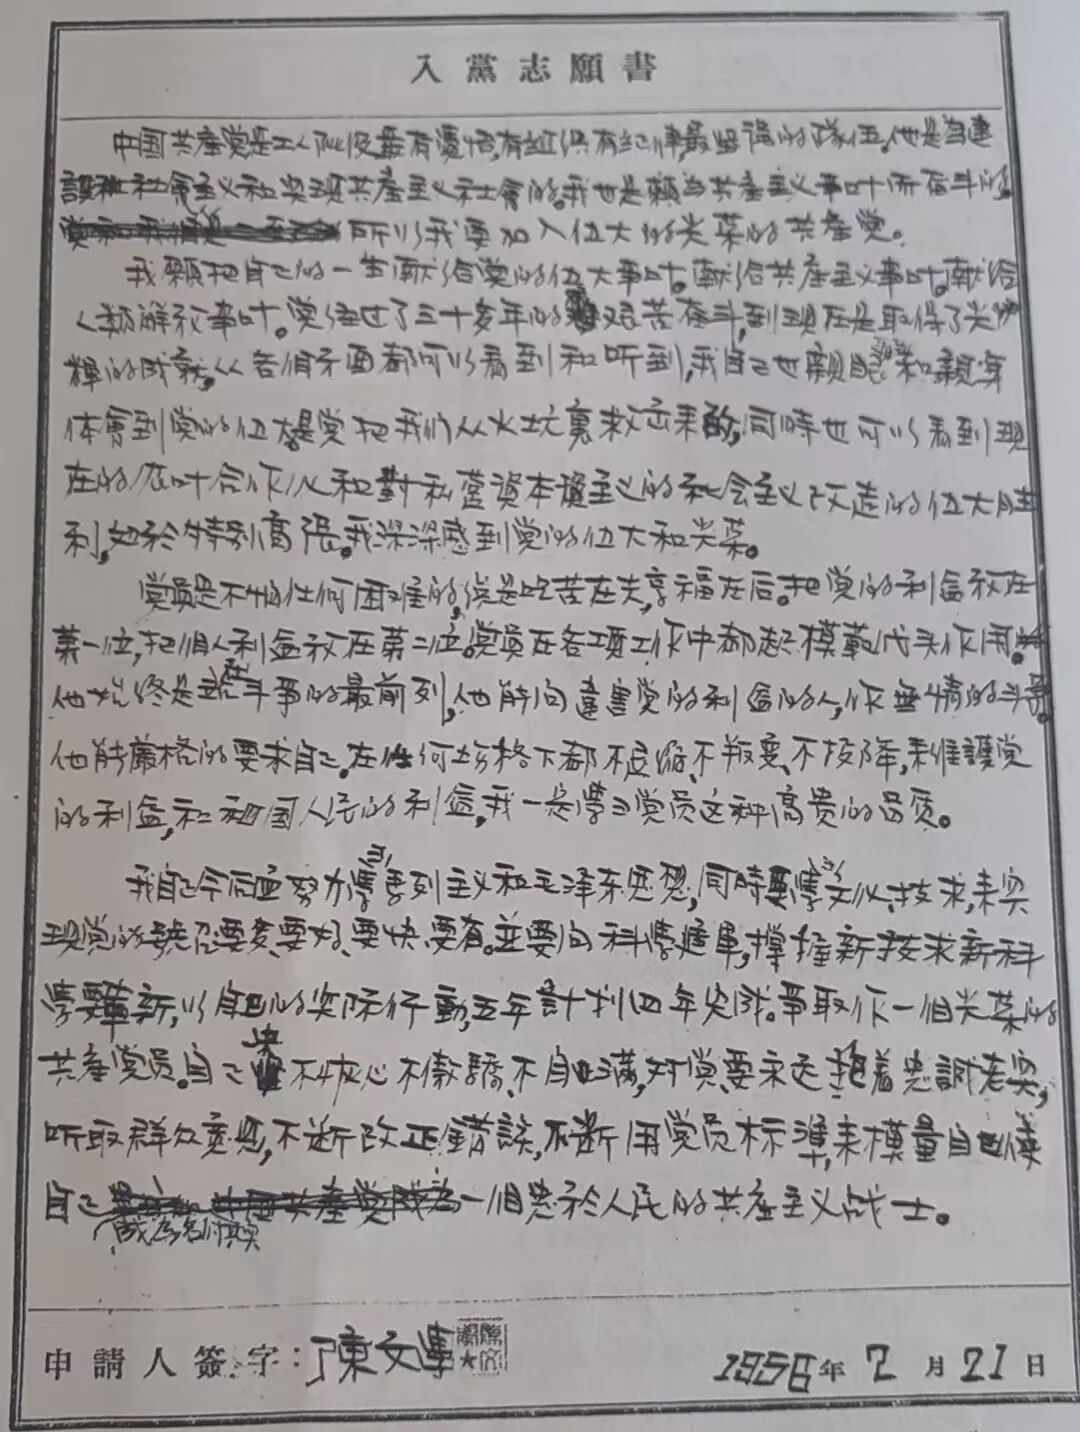 入黨志願書
中国共產党是工人阶级最有覺悟,有组织有纪律,最坚强的隊伍。他是為建
設社會主义和实現共產主义社會的。我也是願为共產主义事叶而奋斗的。
所以我要加入伍大的光荣的共產党。
我願把自己的一生献给党的伍大事叶。献给共产主义事叶。献给
人類解放事叶。党经过了三十多年的艰苦奋斗,到現在是取得了光
輝的成就,从各個方面都可以看到和听到,我自己也親眼和親身
体會到党的伍大是党把我们从火坑裏救出来的,同時也可以看到現
在的农叶合作化和對私营資本主义的社会主义改造的伍大胜
利,处於特别高涨。我深深感到党的伍大和光荣。
党員是不怕任何困难的,總是吃苦在先,享福在后。把党的利益放在
第一位,把個人利益放在第二位。党員在各項工作中都起模範代头作用。
他始终是站在斗爭的最前列,他能向違害党的利益的人,作無情的斗爭。
他能嚴格的要求自己。在任何埸格下都不退缩、不叛变、不投降,来維護党
的利益,和祖国人民的利益,我一定學习党员这种高贵的品质。
我自己今后要努力學习马列主义和毛泽东思想,同時要學习文化、技术,来实
現党的號召要多、要好、要快、要省。並要向科學進軍,撑握新技术新科
學要革新,以自己的实际行動,五年計划四年完成。爭取作一個光荣的
共產党员。自己决不灰心不傲驕、不自满,对党要永远抱着忠誠老实,
听取群众意見,不断改正錯誤,不断用党员标準,来模量自己使
自己成為名付其实一個忠於人民的共產主义战士。
申請人簽字:陳文學
1956年2月21日